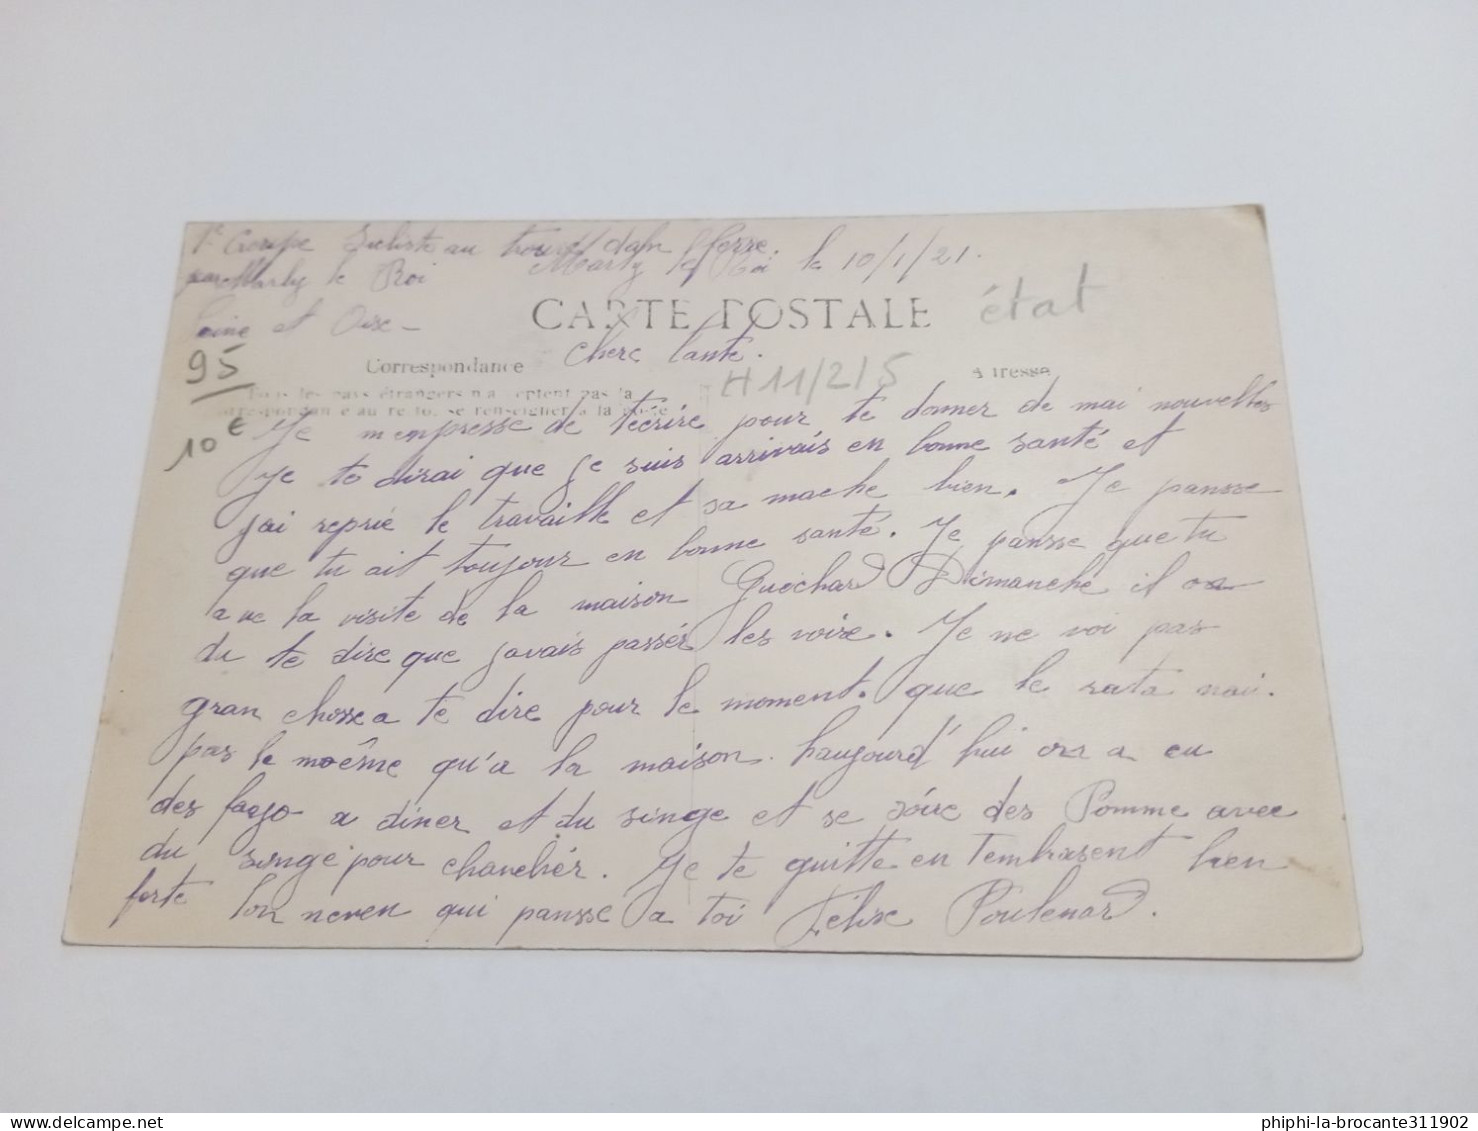 1e Groupe au trou d'
par Marly le Roi
Marly le Roi le 10/1/21.
Seine et Oise -
CARTE POSTALE
état
95
Correspondance
Chere tante.
H11/2/5
Adresse
Tous les pays étrangers n'acceptent pas la
correspondance au recto, se renseigner à la poste
10€
Je m'enpresse de técrire pour te donner de mai nouvelles
je te dirai que je suis arrivais en bonne santé et
jai reprié le travaille et sa mache bien. Je pansse
que tu ait toujour en bonne santé. Je pansse que tu
a ue la visite de la maison Guéchard Dimanche il on
du te dire que javais passér les voire. Je ne voi pas
gran chosse a te dire pour le moment. que le rata nai.
pas le moême qu'a la maison. haujourd'hui on a eu
des fayo a diner et du singe et se soire des Pomme avec
du singe pour changhér. Je te quitte en Tembrasent bien
forte Ton neveu qui pansse a toi Félixe Poulenard.
phiphi-la-brocante311902